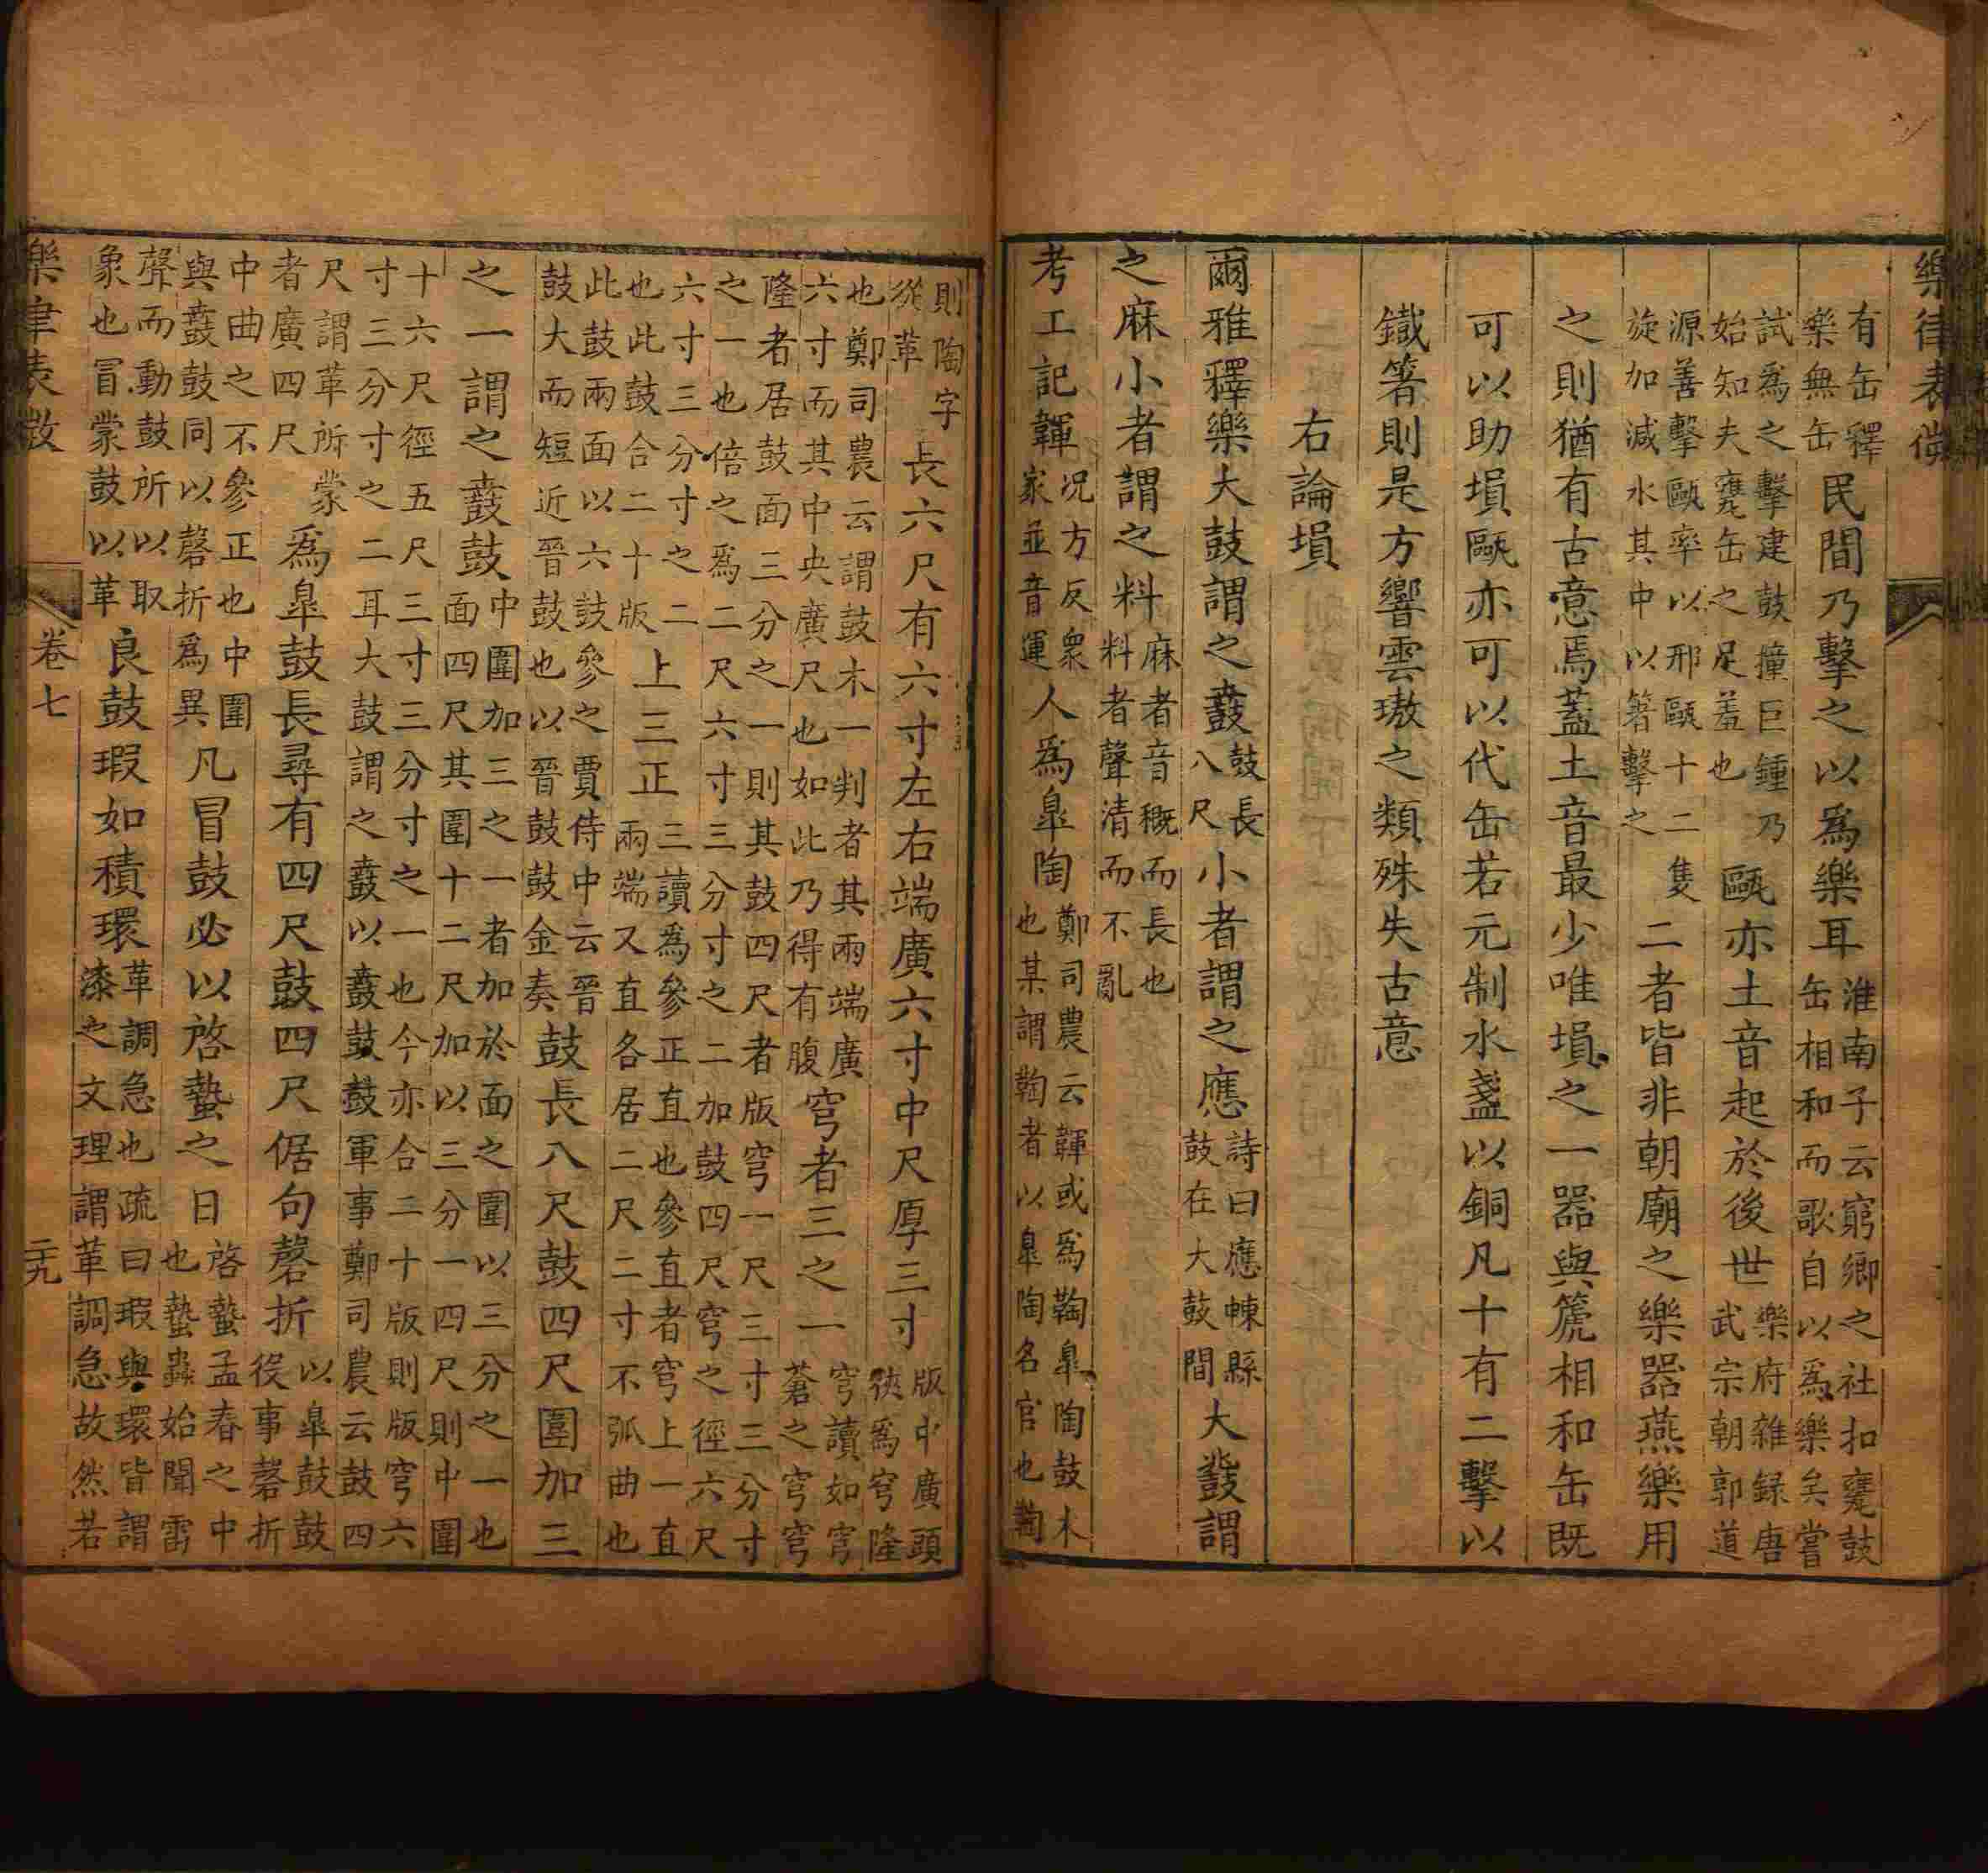 樂律表微
有缶釋樂無缶民間乃擊之以爲樂耳淮南子云窮鄉之社扣甕鼓缶相和而歌自以爲樂矣嘗
試爲之擊建鼓撞巨鍾乃始知夫甕缶之足羞也甌亦土音起於後世樂府雜録唐武宗朝郭道
源善擊甌率以邢甌十二隻旋加減水其中以箸擊之二者皆非朝廟之樂器燕樂用
之則猶有古意焉蓋土音最少唯塤之一器與篪相和缶既
可以助塤甌亦可以代缶若元制水盞以銅凡十有二擊以
鐵箸則是方響雲璈之類殊失古意
右論塤
爾雅釋樂大鼓謂之鼖鼓長八尺小者謂之應詩曰應朄縣鼓在大鼓間大鼗謂
之麻小者謂之料麻者音概而長也料者聲清而不亂
考工記韗况方反衆家並音運人爲皐陶鄭司農云韗或爲鞠皐陶鼓木也某謂鞠者以皐陶名官也鞠
則陶字從革長六尺有六寸左右端廣六寸中尺厚三寸版中廣頭狹爲穹隆
也鄭司農云謂鼓木一判者其兩端廣六寸而其中央廣尺也如此乃得有腹穹者三之一穹讀如穹蒼之穹穹
隆者居鼓面三分之一則其鼓四尺者版穹一尺三寸三分寸之一也倍之爲二尺六寸三分寸之二加鼓四尺穹之徑六尺
六寸三分寸之二也此鼓合二十版上三正三讀爲參正直也參直者穹上一直兩端又直各居二尺二寸不弧曲也
此鼓兩面以六鼓參之賈侍中云晉鼓大而短近晉鼓也以晉鼓鼓金奏鼓長八尺鼓四尺圍加三
之一謂之鼖鼓中圍加三之一者加於面之圍以三分之一也面四尺其圍十二尺加以三分一四尺則中圍
十六尺徑五尺三寸三分寸之一也今亦合二十版則版穹六寸三分寸之二耳大鼓謂之鼖以鼖鼓鼓軍事鄭司農云鼓四
尺謂革所蒙者廣四尺爲皐鼓長尋有四尺鼓四尺倨句磬折以皐鼓鼓役事磬折
中曲之不參正也中圍與鼖鼓同以磬折爲異凡冒鼓必以啓蟄之日啓蟄孟春之中也蟄蟲始聞雷
聲而動鼓所以取象也冒蒙鼓以革良鼓瑕如積環革調急也疏曰瑕與環皆謂漆之文理謂革調急故然若
樂律表微 卷七 二九